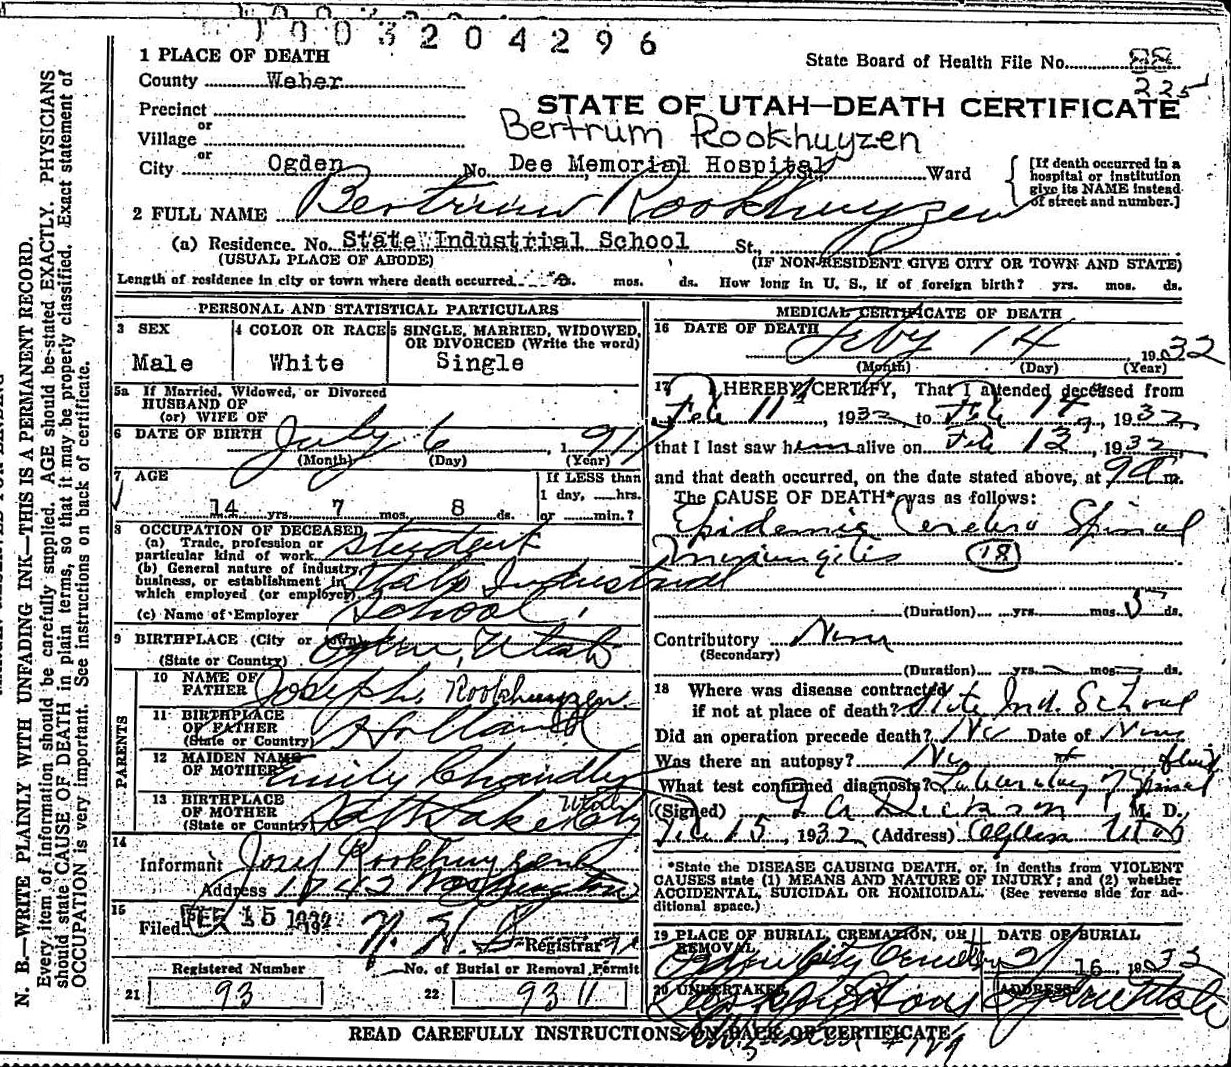 1003204296
1 PLACE OF DEATH
State Board of Health File No. 88
225
County Weber
Precinct
STATE OF UTAH—DEATH CERTIFICATE
or
Village
Bertrum Rookhuyzen
or
City Ogden No. Dee Memorial Hospital St., Ward
[If death occurred in a hospital or institution give its NAME instead of street and number.]
2 FULL NAME Bertrum Rookhuyzen
(a) Residence. No. State Industrial School St.,
(USUAL PLACE OF ABODE) (IF NON-RESIDENT GIVE CITY OR TOWN AND STATE)
Length of residence in city or town where death occurred mos. ds. How long in U. S., if of foreign birth? yrs. mos. ds.
PERSONAL AND STATISTICAL PARTICULARS
3 SEX
Male
4 COLOR OR RACE
White
5 SINGLE, MARRIED, WIDOWED,
OR DIVORCED (Write the word)
Single
5a If Married, Widowed, or Divorced
HUSBAND OF
(or) WIFE OF
6 DATE OF BIRTH July 6, 1917
(Month) (Day) (Year)
7 AGE
14 yrs. 7 mos. 8 ds.
If LESS than
1 day, hrs.
or min.?
8 OCCUPATION OF DECEASED
(a) Trade, profession or
particular kind of work student
(b) General nature of industry,
business, or establishment in
which employed (or employer) State Industrial
(c) Name of Employer School
9 BIRTHPLACE (City or town)
(State or Country) Ogden, Utah
PARENTS
10 NAME OF
FATHER Joseph Rookhuyzen
11 BIRTHPLACE
OF FATHER
(State or Country) Holland
12 MAIDEN NAME
OF MOTHER Emily Chandler
13 BIRTHPLACE
OF MOTHER
(State or Country) Salt Lake City Utah
14
Informant Josef Rookhuyzen
Address Washington
15
Filed FEB 15 1932
Registrar
Registered Number
21 93
No. of Burial or Removal Permit
22 9311
MEDICAL CERTIFICATE OF DEATH
16 DATE OF DEATH
Feby 14, 1932
(Month) (Day) (Year)
17 I HEREBY CERTIFY, That I attended deceased from
Feb 11, 1932 to Feb 14, 1932
that I last saw him alive on Feb 13, 1932
and that death occurred, on the date stated above, at 9 a m.
The CAUSE OF DEATH* was as follows:
Epidemic Cerebro Spinal
Meningitis (18)
(Duration) yrs. mos. 5 ds.
Contributory None
(Secondary)
(Duration) yrs. mos. ds.
18 Where was disease contracted
if not at place of death? State Ind. School
Did an operation precede death? No Date of None
Was there an autopsy? No
What test confirmed diagnosis? Laboratory of Spinal fluid
(Signed) Dickson M. D.
Feb 15, 1932 (Address) Ogden Utah
*State the DISEASE CAUSING DEATH, or, in deaths from VIOLENT
CAUSES state (1) MEANS AND NATURE OF INJURY; and (2) whether
ACCIDENTAL, SUICIDAL OR HOMICIDAL. (See reverse side for ad-
ditional space.)
19 PLACE OF BURIAL, CREMATION, OR
REMOVAL
Ogden City Cemetery
DATE OF BURIAL
2/16 1932
20 UNDERTAKER
ADDRESS
Ogden Utah
READ CAREFULLY INSTRUCTIONS ON BACK OF CERTIFICATE
N. B.—WRITE PLAINLY WITH UNFADING INK—THIS IS A PERMANENT RECORD.
Every item of information should be carefully supplied. AGE should be stated EXACTLY. PHYSICIANS
should state CAUSE OF DEATH in plain terms, so that it may be properly classified. Exact statement of
OCCUPATION is very important. See instructions on back of certificate.